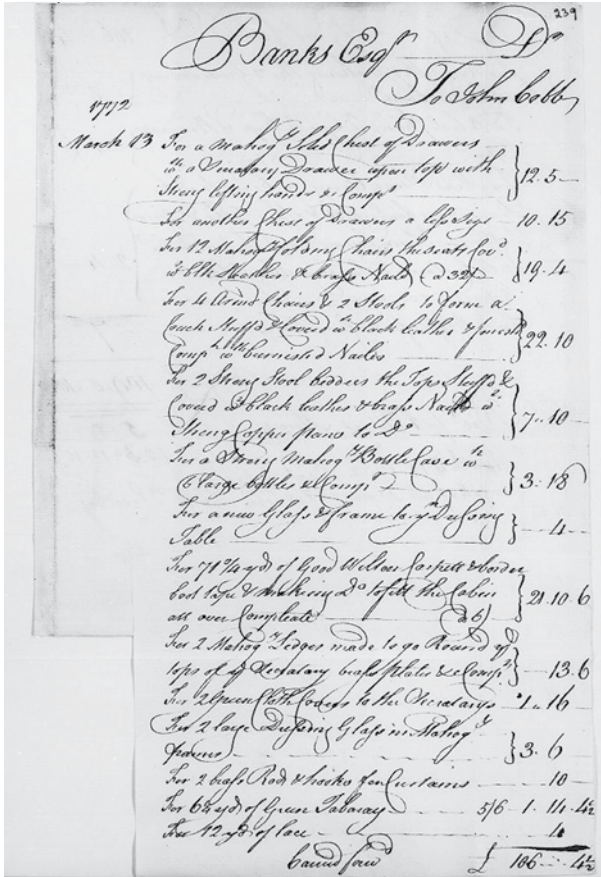 239
Banks Esqr Dr
To John Cobb
1772
March 13 For a Mahogy Chest of Drawers
wth a Secretary Drawer upon top with
Strong lifting hands & Compt } 12. 5 —
For another Chest of Drawers a less Size — 10. 15
For 12 Mahogy folding Chairs the seats Covd
wth Blk Leather & brass Nails @ 32/ } 19. 4
For 4 Armd Chairs & 2 Stools to form a
Couch Stuff'd & Coverd wth black leather &
Compt wth burnish'd Nailes } 22. 10
For 2 Strong Stool the Tops Stuff'd &
Coverd wth black leather & brass Nails wth
Strong Copper pans to Do } 7. 10 —
For a Strong Mahogy Bottle Case wth
6 large bottles & Compt } 3. 18
For a new Glass & frame to ye Dressing
Table } — 4 —
For 71 3/4 yds of Good Wilton Carpett & border
tape & making Do to fitt the Cabin
all over Compleate @ 6/ } 21. 10. 6
For 2 Mahogy Ledges made to go Round ye
tops of ye Secratary brass plates & Compt } — 13. 6
For 2 Green Cloth Covers to the Secretarys — 1. 16
For 2 large Dressing Glass in Mahogy
frames } 3. 6
For 2 brass Rods & hooks for Curtains — 10 —
For 6 1/4 yds of Green Tabaray — 5/6 — 1. 14. 4½
For 12 yds of lace — 4
Carried forwd £ 106 — 4½